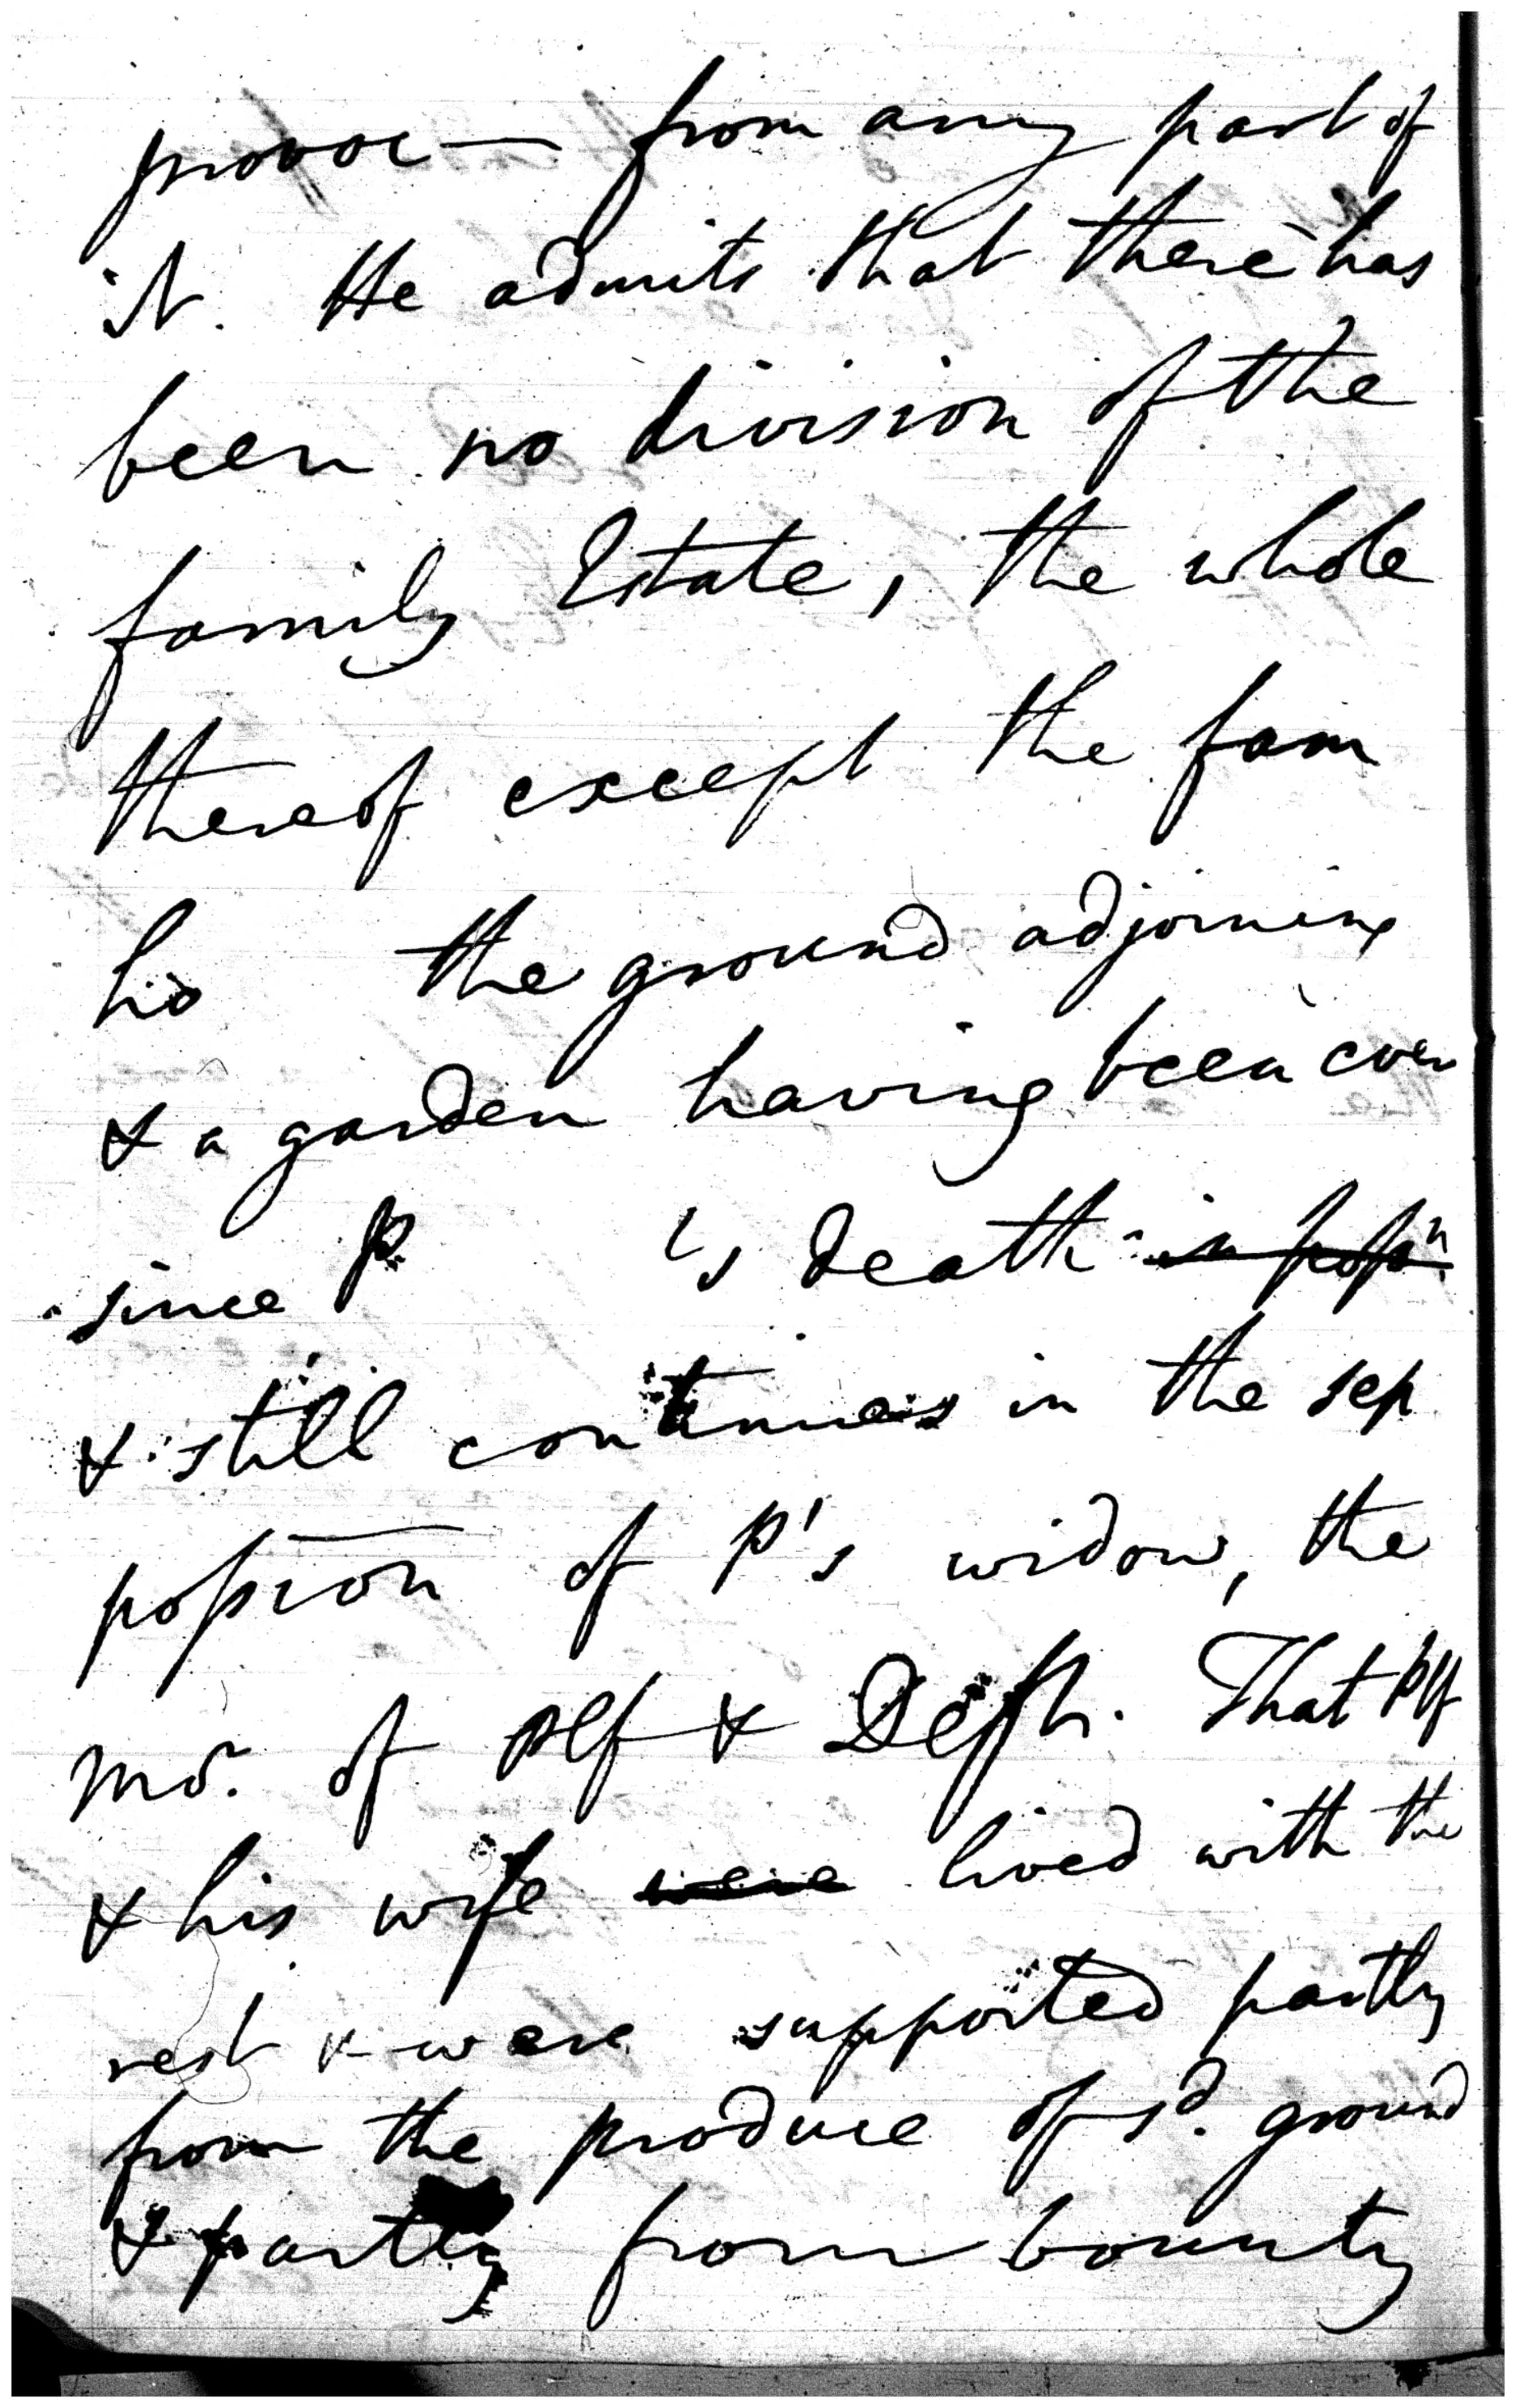 from any part of
it. He admits that there has
been no division of the
family Estate, the whole
thereof except the fam
ho the ground adjoining
& a garden having been ever
since P 's death in possn
& still continues in the sep
possion of P's widow, the
mor. of Plf & Defts. That Plf
& his wife were lived with the
rest & were supported partly
from the produce of sd. ground
& partly from bounty